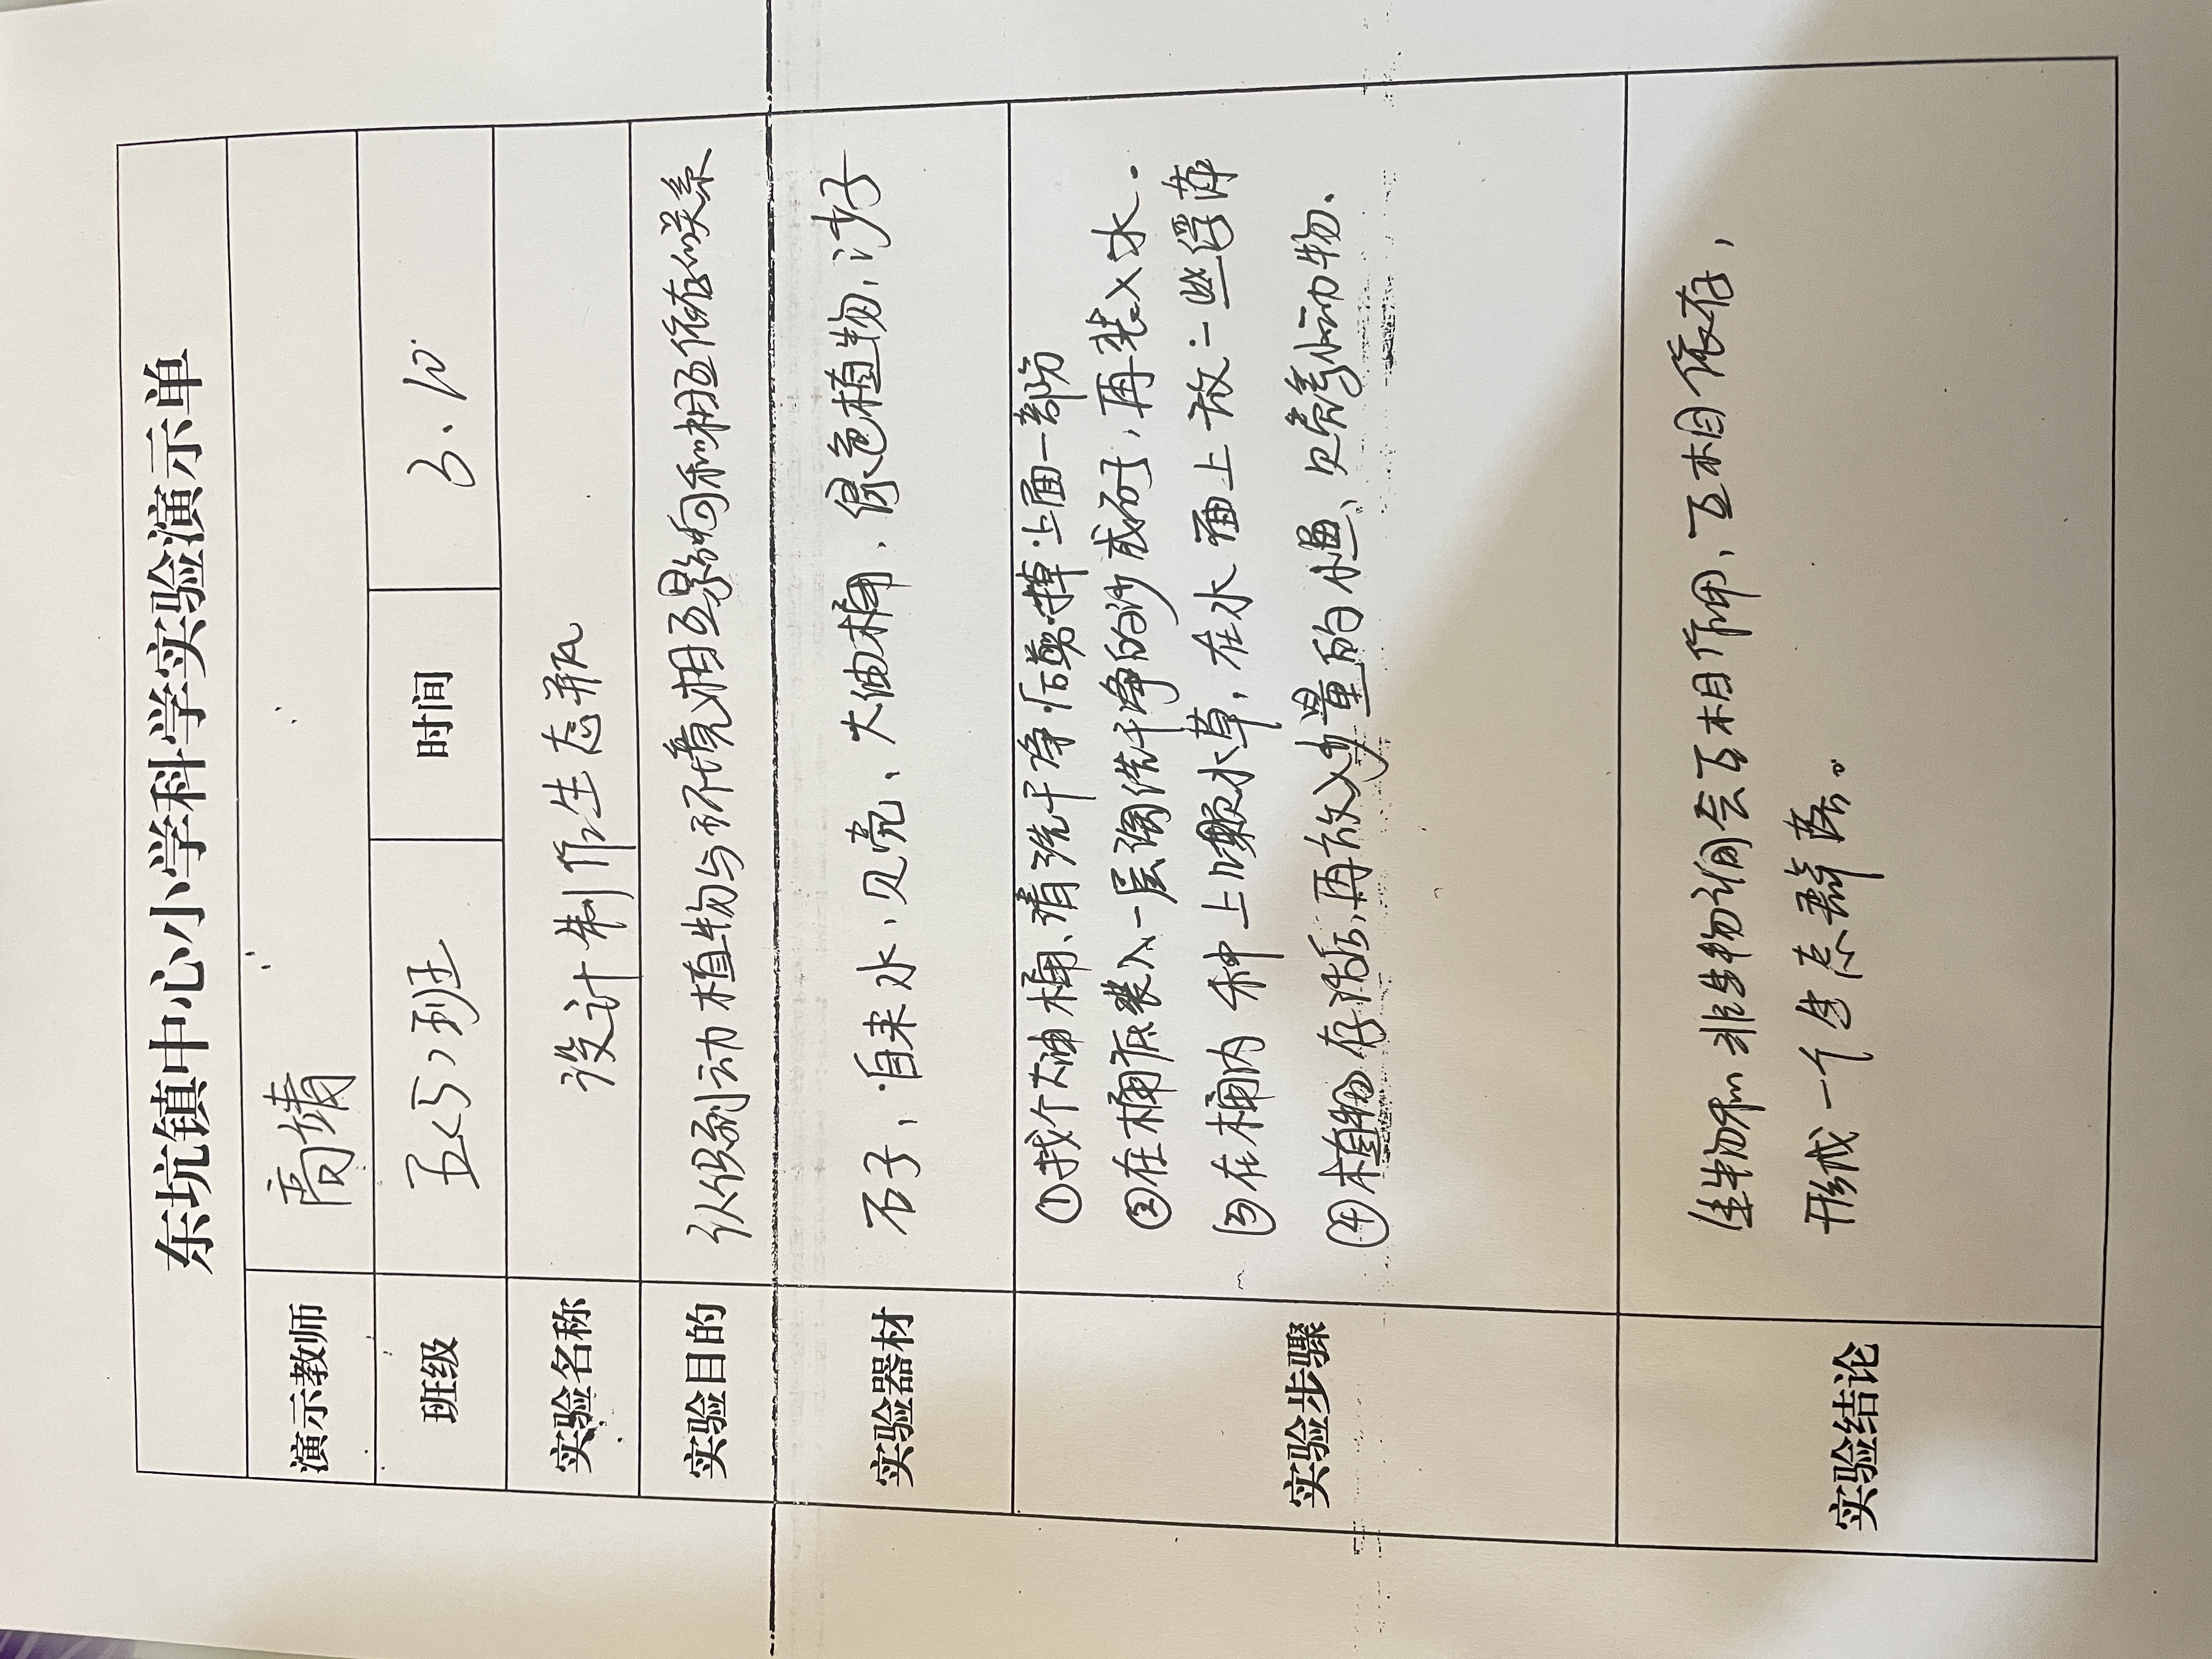 东坑镇中心小学科学实验演示单
演示教师 高靖
班级 五(5)班 时间 3.10
实验名称 设计制作生态瓶
实验目的 认识到动植物与环境相互影响和相互依存的关系
实验器材 石子、自来水、贝壳、大油桶、绿色植物、沙子
实验步骤
①找个大油桶、清洗干净后剪掉上面一部分
②在桶底装入一层淘洗干净的沙或石子，再装入水.
③在桶内种上水草，在水面上放一些浮萍
④植物存活后，再放入少量的小鱼、贝类等小动物.
实验结论
生物和非生物间会互相作用、互相依存，
形成一个生态群落。